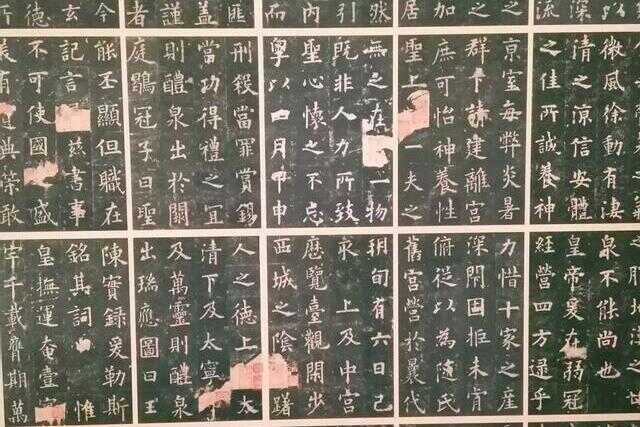 深
流
之
之
加
居
然
引
内
而
匪
蓋
謹
者
令
玄
德
微風徐動有凄
清之涼信安體
之佳所誠養神
京室每弊炎暑
群下請建離宮
庶可怡神養性
聖上一夫之
無之在一物
既非人力所致
聖心懷之不忘
粵以四月甲申
刑殺當罪賞錫
當功得禮之宜
則醴泉出於闕
庭鶡冠子曰聖
能丕顯但職在
記言茲書事
不可使國盛
美有典策敢
泉不能尚也
皇帝爰在弱冠
經營四方逯乎
力惜十家之産
深閉固拒未肯
俯從以為隨氏
舊宮營於曩代
朔旬有六日己
來上及中宮
歷覽臺觀閑步
西城之陰躊
人之德上太
清下及太寧
及萬靈則醴泉
出瑞應圖曰王
陳實録爰勒斯
銘其詞惟
皇撫運奄壹寰
宇千載膺期萬